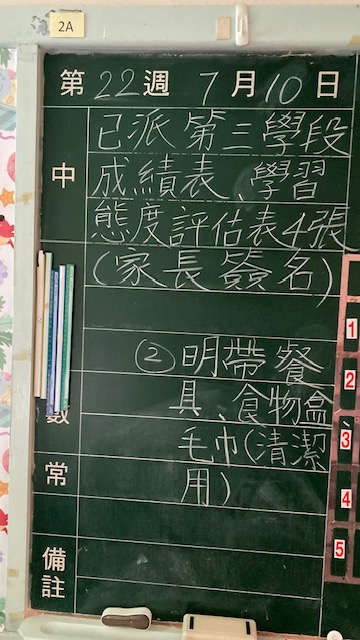 2A
第22週 7月10日
中
已派第三學段
成績表、學習
態度評估表4張
(家長簽名)
②明帶餐
具、食物盒、
毛巾(清潔
用)
數
常
備註
1
2
3
4
5